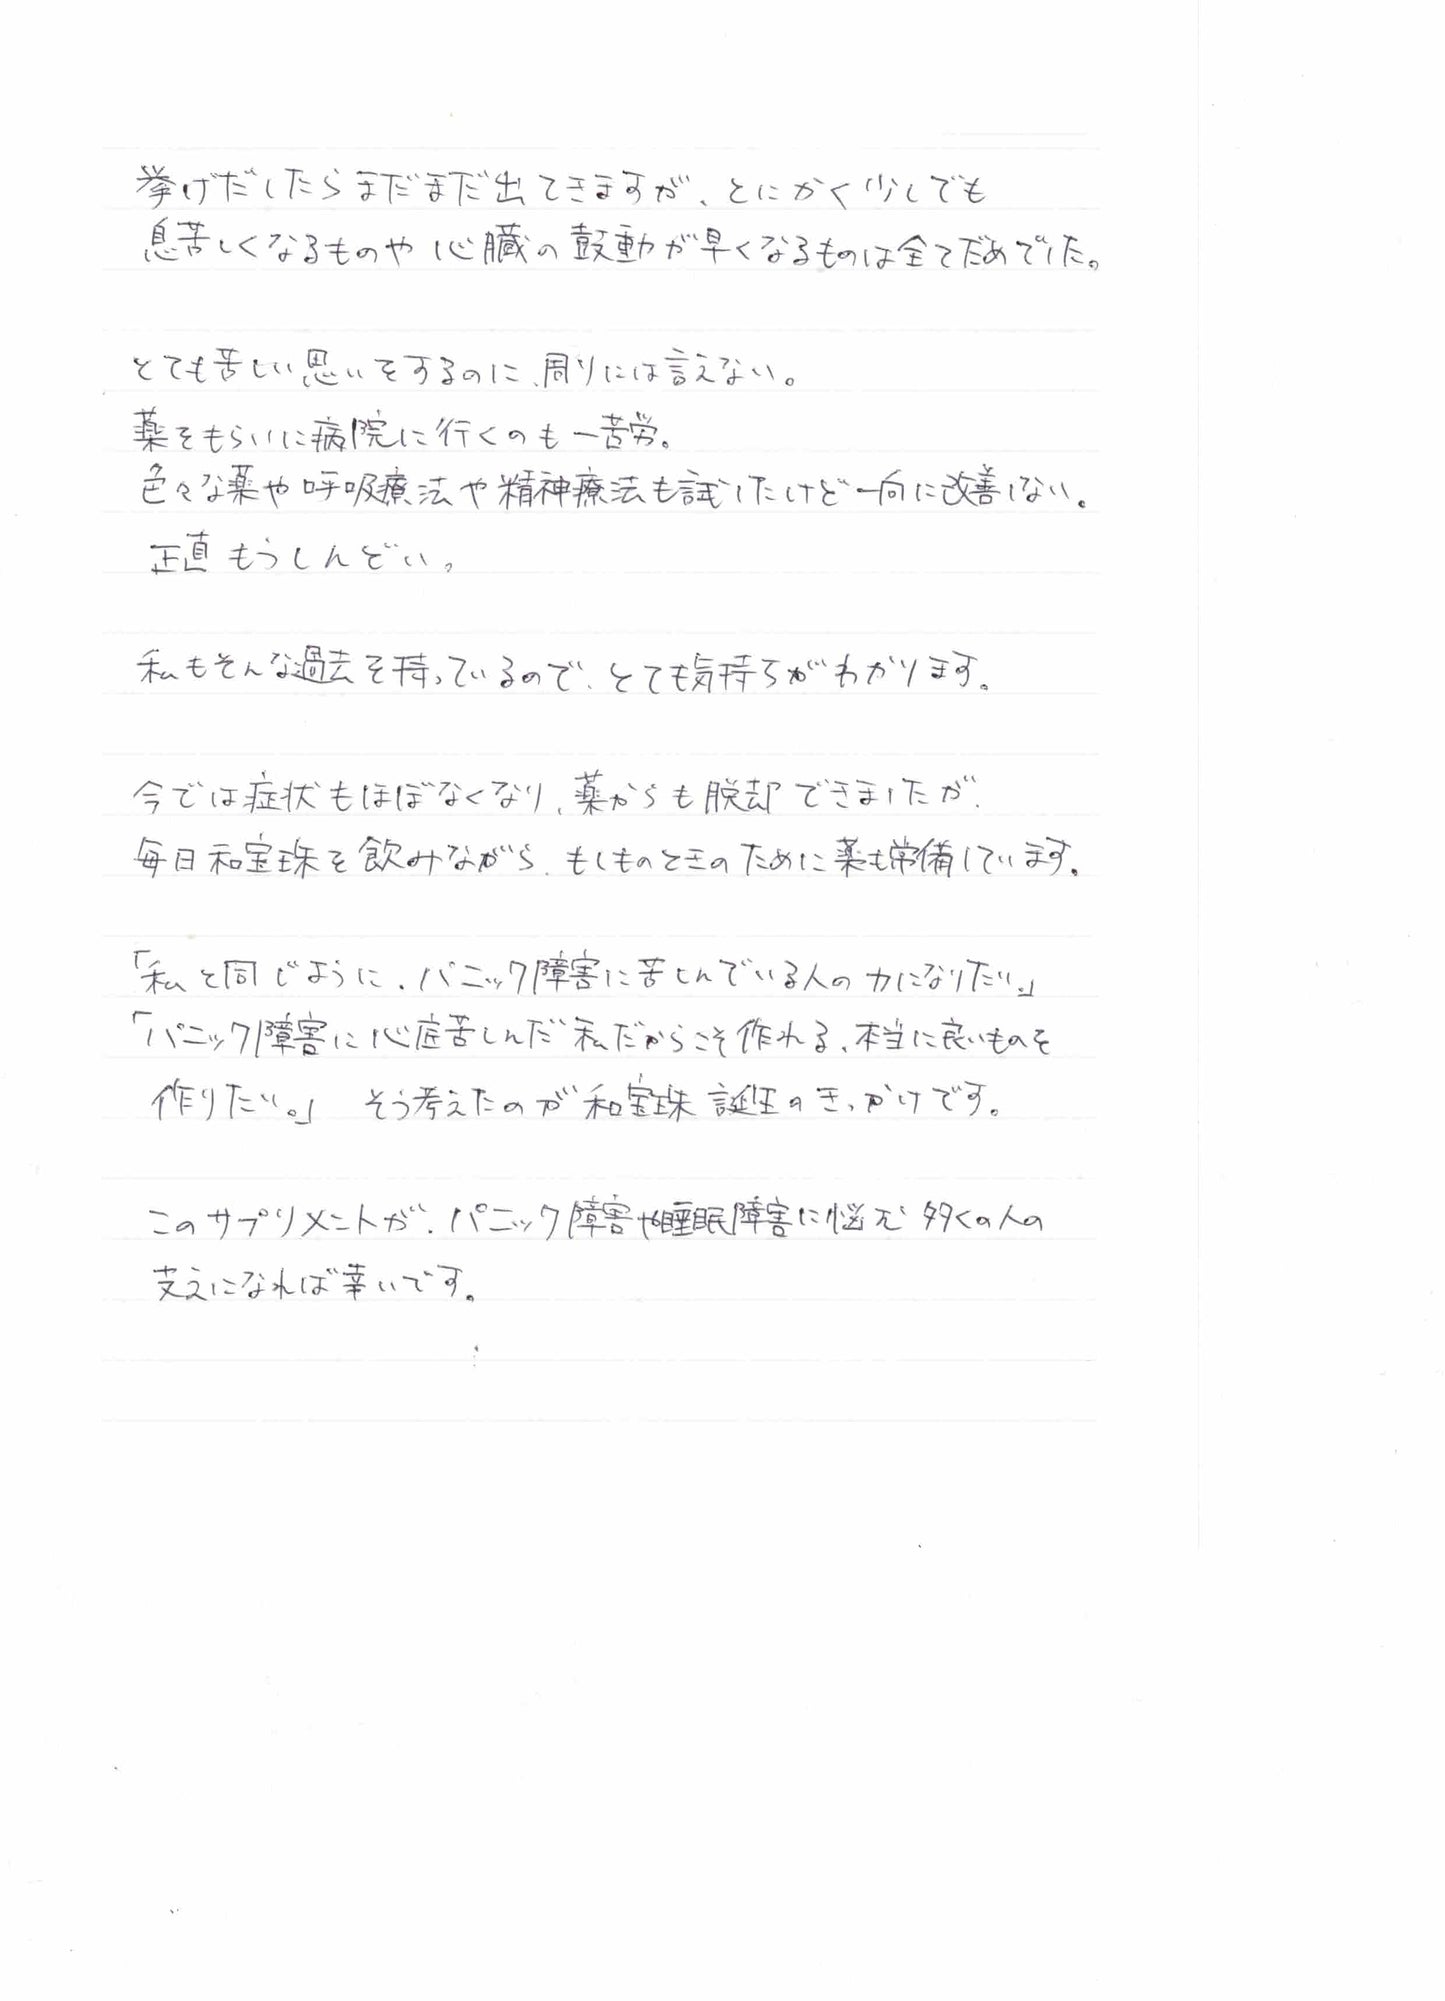 挙げだしたらまだまだ出てきますが、とにかく少しでも
息苦しくなるものや心臓の鼓動が早くなるものは全てだめでした。
とても苦しい思いをするのに、周りには言えない。
薬をもらいに病院に行くのも一苦労。
色々な薬や呼吸療法や精神療法も試したけど一向に改善しない。
正直もうしんどい。
私もそんな過去を持っているので、とても気持ちがわかります。
今では症状もほぼなくなり、薬からも脱却できましたが、
毎日和宝珠を飲みながら、もしものときのために薬も常備しています。
「私と同じように、パニック障害に苦しんでいる人の力になりたい。」
「パニック障害に心底苦しんだ私だからこそ作れる、本当に良いものを
作りたい。」 そう考えたのが和宝珠誕生のきっかけです。
このサプリメントが、パニック障害や睡眠障害に悩む多くの人の
支えになれば幸いです。